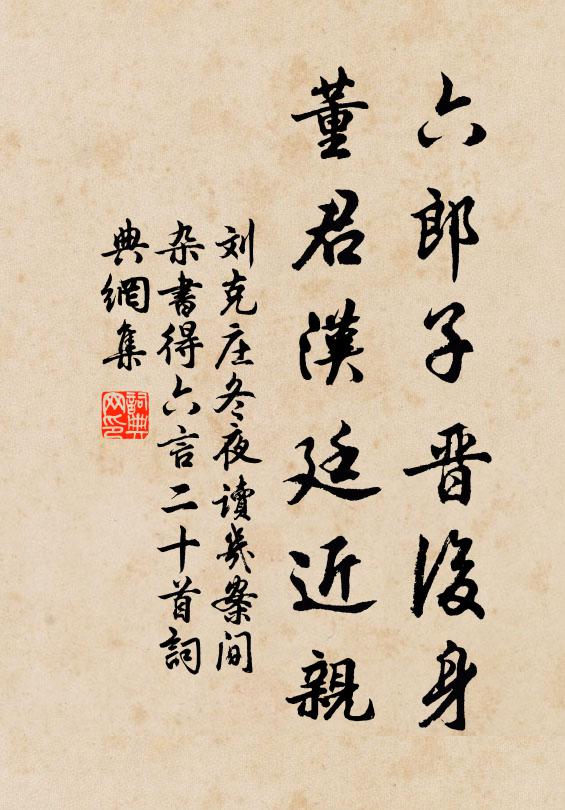 六郎子晋後身
董君漢廷近親
刘克庄冬夜讀幾案间
杂書得六言二十首詞
典網集
詞典网印